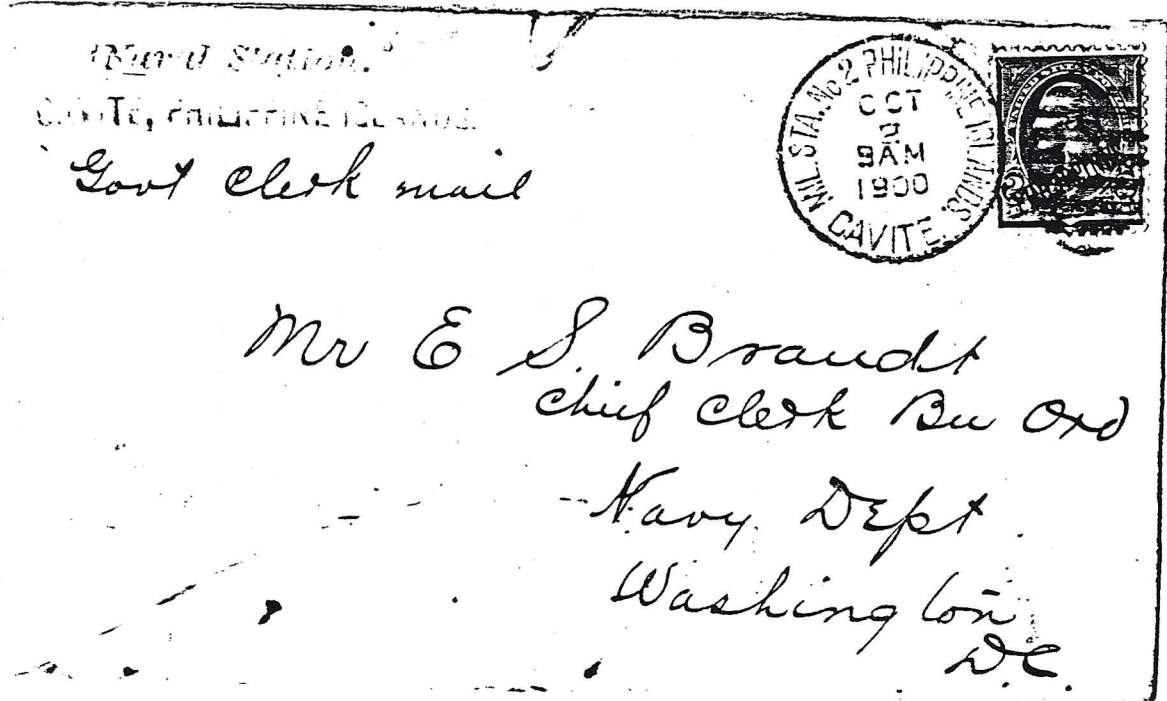 Naval Station.
CAVITE, PHILIPPINE ISLANDS.
Govt Clerk mail
MIL. STA. No 2 PHILIPPINE ISLANDS.
OCT
9AM
1900
CAVITE.
Mr E S. Brandt
Chief Clerk Bu Ord
Navy Dept
Washington
D.C.